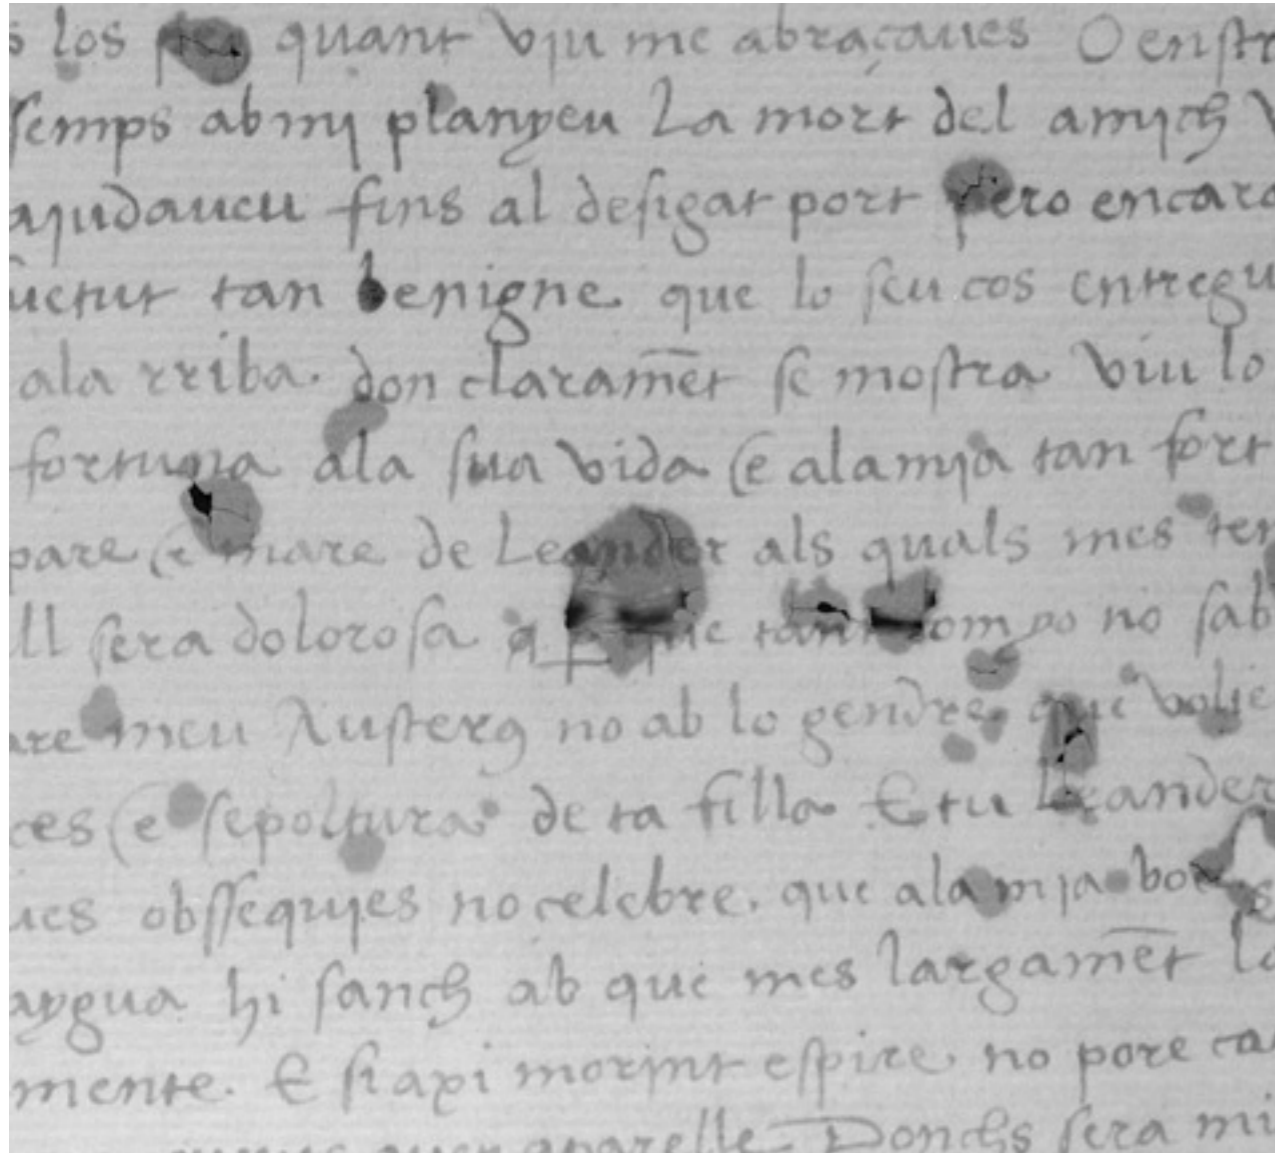 s los quant viu me abraçaues O enstr
semps ab mi planyeu La mort del amich V
ajudaueu fins al desigat port pero encara
uetut tan benigne que lo seu cos entregu
ala rriba. don claramēt se mostra viu lo
fortuna ala sua vida (e ala mja tan fort
pare (e mare de Leander als quals mes ten
ll sera dolorosa que tant no sab
are meu Austerꝯ no ab lo gendre que volie
ces (e sepoltura de ta filla E tu Leander
ues obssequjes no celebre. que ala mja
aygua hi sanch ab que mes largamēt la
mente. E si axi morjnt espire no pore ca
aparelle Donchs sera mi